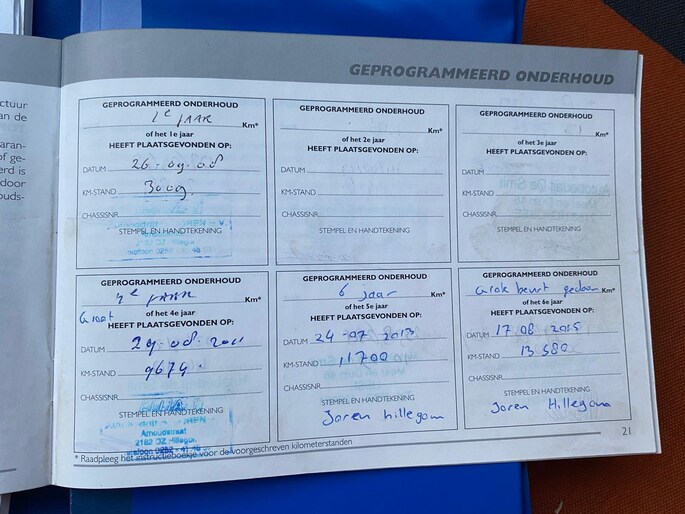 GEPROGRAMMEERD ONDERHOUD
GEPROGRAMMEERD ONDERHOUD
1e JAAR
Km*
of het 1e jaar
HEEFT PLAATSGEVONDEN OP:
DATUM 26-09-08
KM-STAND 3009
CHASSISNR.
STEMPEL EN HANDTEKENING
GEPROGRAMMEERD ONDERHOUD
Km*
of het 2e jaar
HEEFT PLAATSGEVONDEN OP:
DATUM
KM-STAND
CHASSISNR.
STEMPEL EN HANDTEKENING
GEPROGRAMMEERD ONDERHOUD
Km*
of het 3e jaar
HEEFT PLAATSGEVONDEN OP:
DATUM
KM-STAND
CHASSISNR.
STEMPEL EN HANDTEKENING
GEPROGRAMMEERD ONDERHOUD
4e JAAR
Km*
Groot
of het 4e jaar
HEEFT PLAATSGEVONDEN OP:
DATUM 29-08-2011
KM-STAND 9674
CHASSISNR.
STEMPEL EN HANDTEKENING
2182 DZ Hillegom
GEPROGRAMMEERD ONDERHOUD
6 jaar Km*
of het 5e jaar
HEEFT PLAATSGEVONDEN OP:
DATUM 24-07 2013
KM-STAND 11700
CHASSISNR.
STEMPEL EN HANDTEKENING
Joren hillegom
GEPROGRAMMEERD ONDERHOUD
Grote beurt gedaan Km*
of het 6e jaar
HEEFT PLAATSGEVONDEN OP:
DATUM 17 08 2015
KM-STAND 13580
CHASSISNR.
STEMPEL EN HANDTEKENING
Joren Hillegom
* Raadpleeg het instructieboekje voor de voorgeschreven kilometerstanden
21